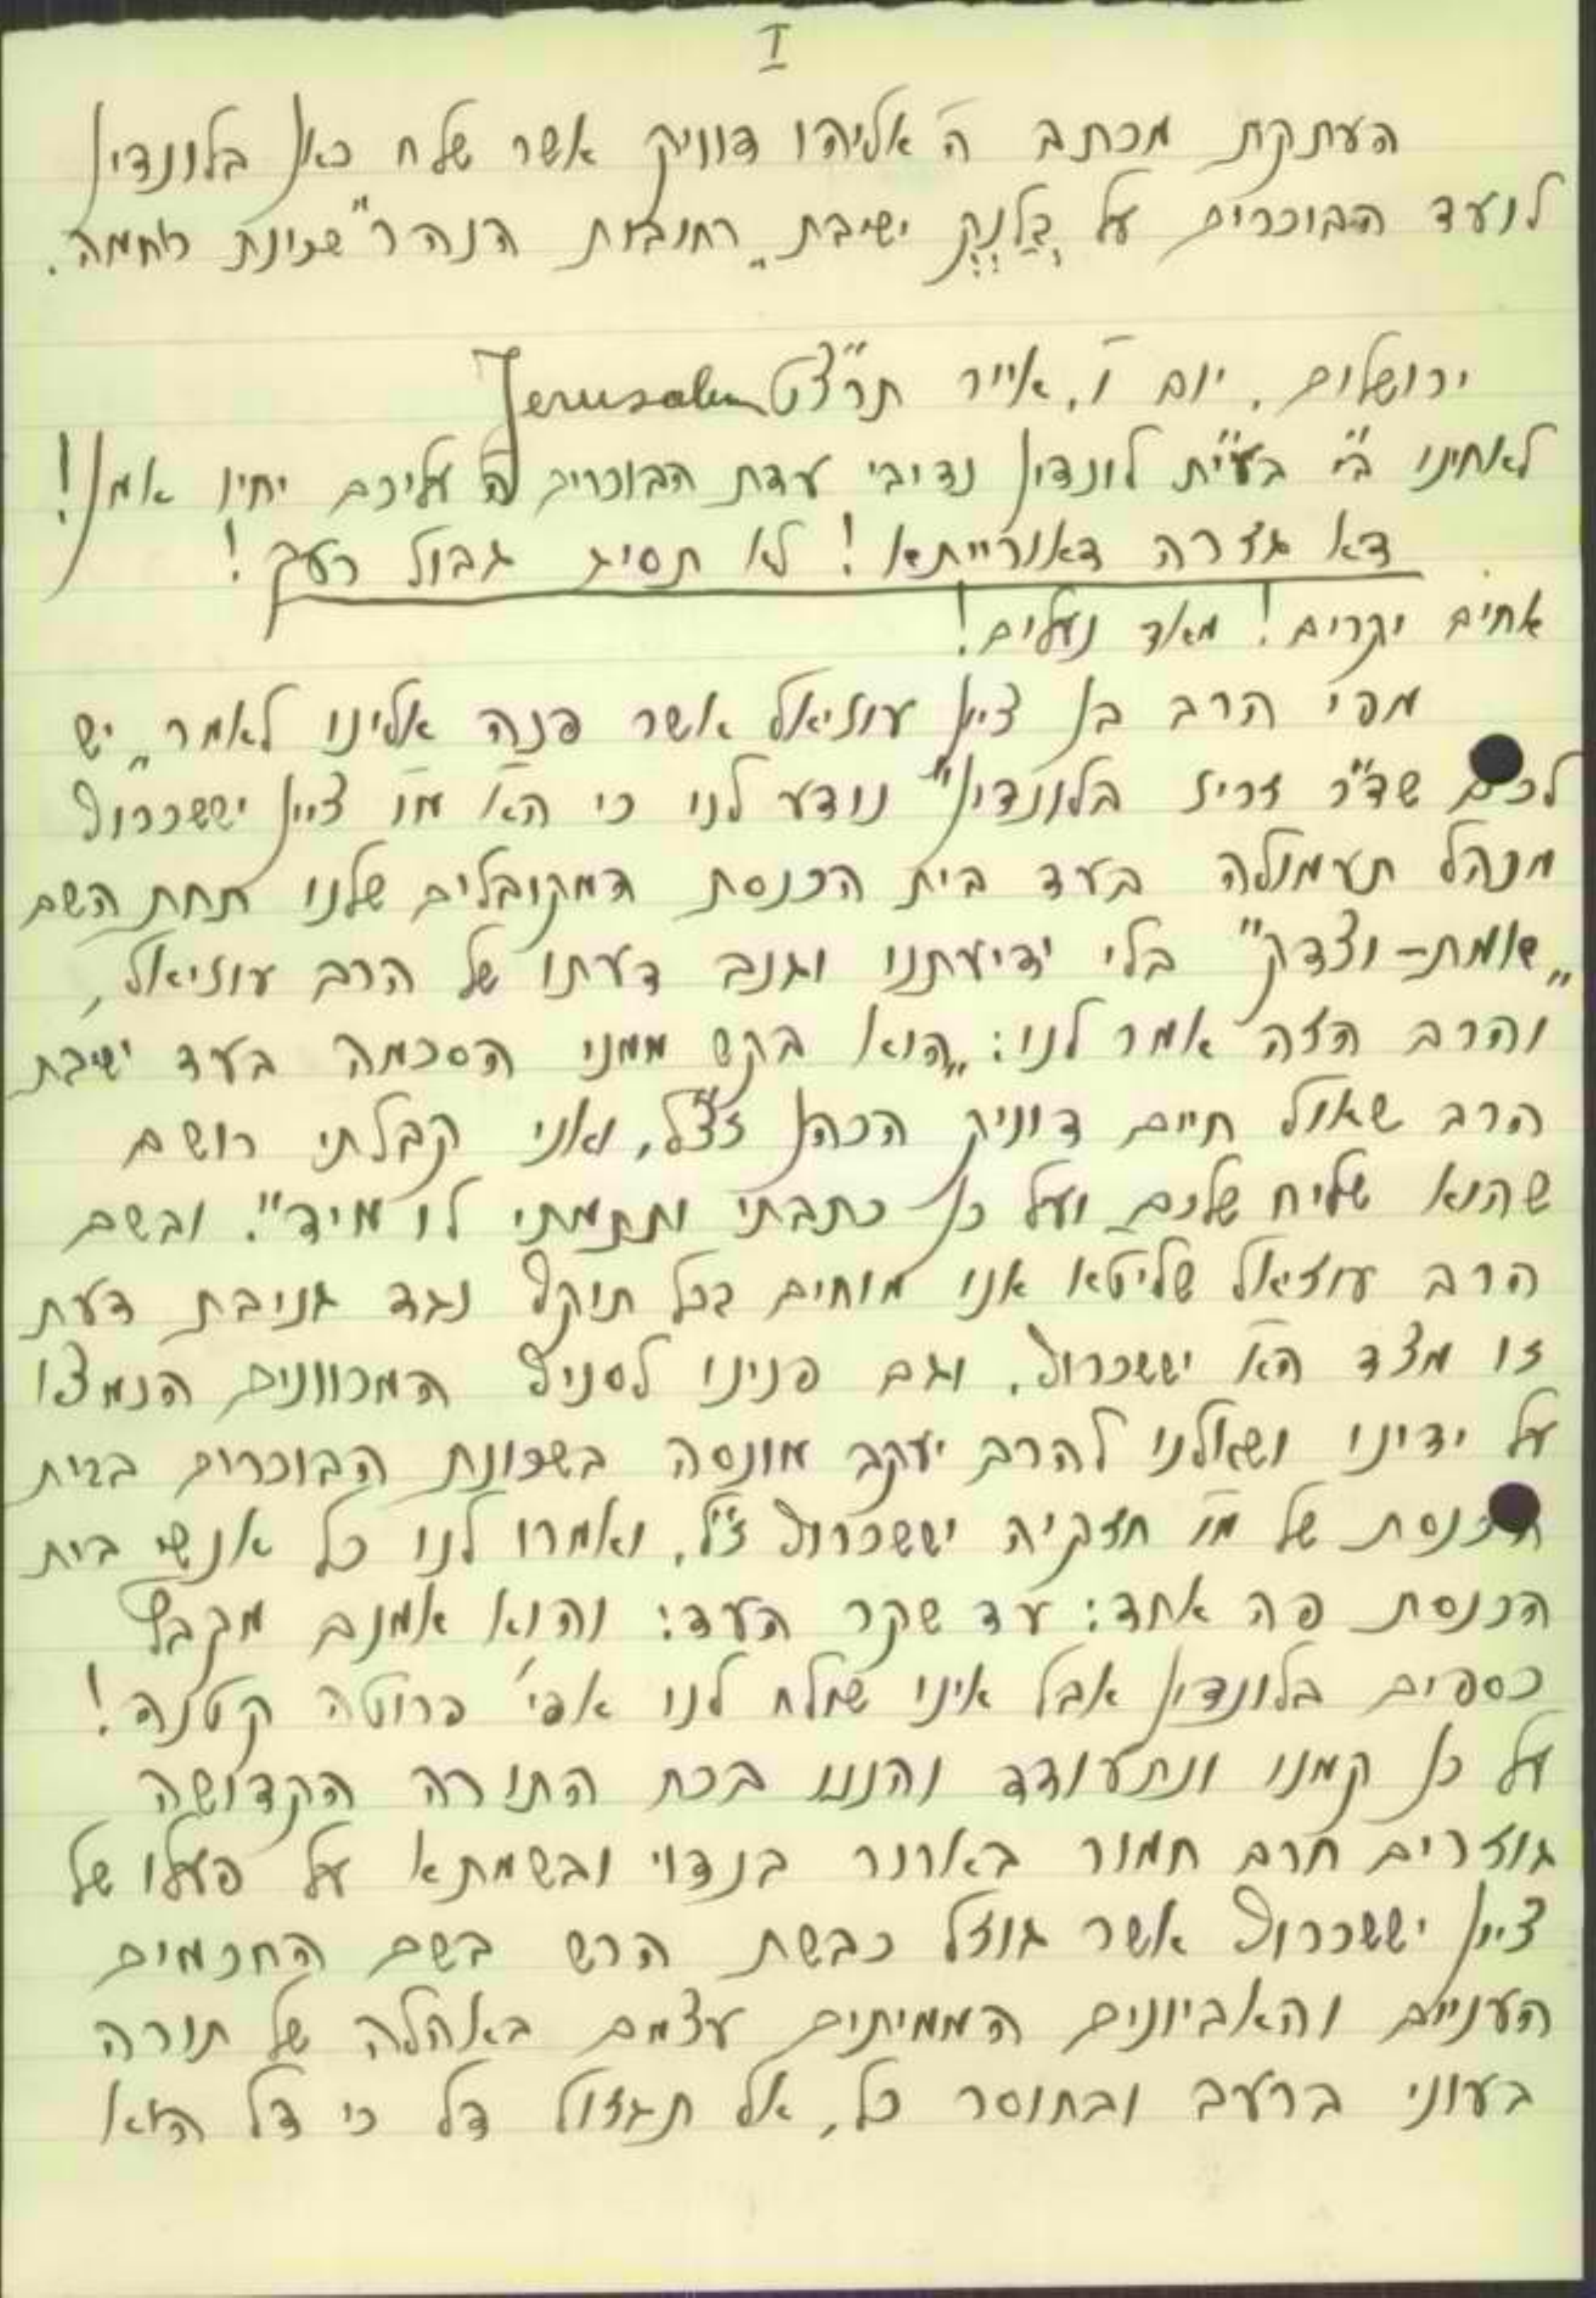 I
העתקת מכתב ה' אליהו דוויק אשר שלח כאן בלונדין
לועד הבוכרים על בלנק ישיבת „רחובות הנהר" שכונת רחמה.
ירושלים. יום ו'. אייר תרצ"ט Jerusalem
לאחינו ב"י בעי"ת לונדין נדיבי עדת הבוכרים ה' עליכם יחיו אמן!
דא גזרה דאורייתא! לא תסיג גבול רעך!
אחים יקרים! מאד נעלים!
מפי הרב בן ציון עוזיאל אשר פנה אלינו לאמר „יש
לכם שד"ר זריז בלונדין" נודע לנו כי הא' מו' ציון יששכרוף
מנהל תעמולה בעד בית הכנסת המקובלים שלנו תחת השם
„אומת-וצדק" בלי ידיעתנו וגנב דעתו של הרב עוזיאל,
והרב הזה אמר לנו: „הוא בקש ממני הסכמה בעד ישיבת
הרב שאול חיים דוויק הכהן זצ"ל, ואני קבלתי רושם
שהוא שליח שלכם ועל כן כתבתי וחתמתי לו מיד". ובשם
הרב עוזיאל שליטא אנו מוחים בכל תוקף נגד גניבת דעת
זו מצד הא' יששכרוף. וגם פנינו לסניף המכוונים הנמצא
על ידינו ושאלנו להרב יעקב מונסה בשכונת הבוכרים בבית
הכנסת של מו' חזקיה יששכרוף ז"ל. ואמרו לנו כל אנשי בית
הכנסת פה אחד: עד שקר העד: והוא אמנם מקבל
כספים בלונדין אבל אינו שולח לנו אפי' פרוטה קטנה!
על כן קמנו ונתעודד והננו בכח התורה הקדושה
גוזרים חרם חמור בארור בנדוי ובשמתא על פעלו של
ציון יששכרוף אשר גוזל כבשת הרש בשם החכמים
העניים והאביונים הממיתים עצמם באהלה של תורה
בעוני ברעב ובחוסר כל, אל תגזול דל כי דל הוא